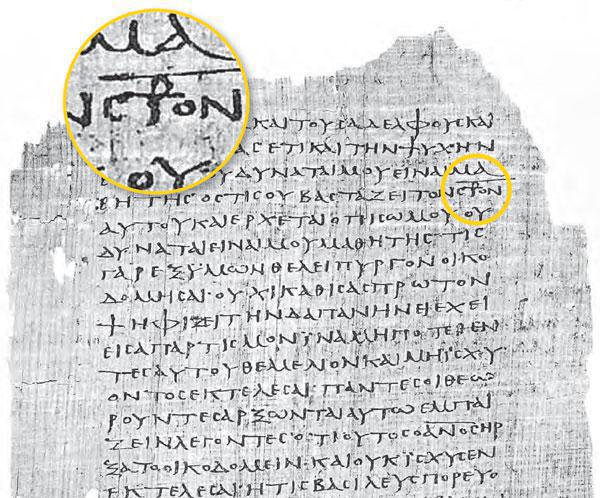 ΜΑ
ΝϹ⳨ΟΝ
ΟΥ
ΚΑΙΤΟΥϹΑΔΕΛΦΟΥϹΚΑΙ
ΑϹΕΤΙΚΑΙΤΗΝΨΥΧΗΝ
ΥΔΥΝΑΤΑΙΜΟΥΕΙΝΑΙΜΑ
ΘΗΤΗϹΟϹΤΙϹΟΥΒΑϹΤΑΖΕΙΤΟΝϹ⳨ΟΝ
ΑΥΤΟΥΚΑΙΕΡΧΕΤΑΙΟΠΙϹΩΜΟΥΟΥ
ΔΥΝΑΤΑΙΕΙΝΑΙΜΟΥΜΑΘΗΤΗϹΤΙϹ
ΓΑΡΕΞΥΜΩΝΘΕΛΕΙΠΥΡΓΟΝΟΙΚΟ
ΔΟΜΗϹΑΙ·ΟΥΧΙΚΑΘΙϹΑϹΠΡΩΤΟΝ
ΨΗΦΙΖΕΙΤΗΝΔΑΠΑΝΗΝΕΙΕΧΕΙ
ΕΙϹΑΠΑΡΤΙϹΜΟΝΙΝΑΜΗΠΟΤΕΘΕΝ
ΤΕϹΑΥΤΟΥΘΕΜΕΛΙΟΝΚΑΙΜΗΙϹΧΥ
ΟΝΤΟϹΕΚΤΕΛΕϹΑΙ·ΠΑΝΤΕϹΟΙΘΕΩ
ΡΟΥΝΤΕϹΑΡΞΩΝΤΑΙΑΥΤΩΕΜΠΑΙ
ΖΕΙΝΛΕΓΟΝΤΕϹΟΤΙΟΥΤΟϹΟΑΝΟϹΗΡ
ΞΑΤΟΟΙΚΟΔΟΜΕΙΝ·ΚΑΙΟΥΚΙϹΧΥϹΕΝ
ΕΚΤΕΛΕϹΑΙΗΤΙϹΒΑϹΙΛΕΥϹΠΟΡΕΥΟ